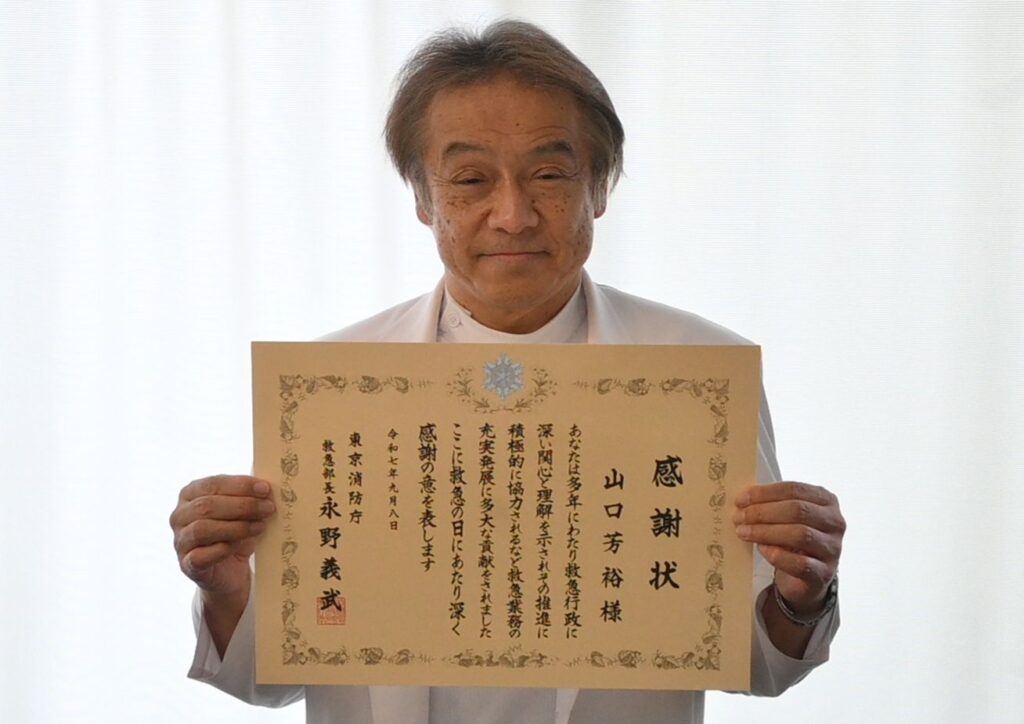 感謝状
山口芳裕様
あなたは多年にわたり救急行政に
深い関心と理解を示されその推進に
積極的に協力されるなど救急業務の
充実発展に多大な貢献をされました
ここに救急の日にあたり深く
感謝の意を表します
令和七年九月八日
東京消防庁
救急部長 永野義武